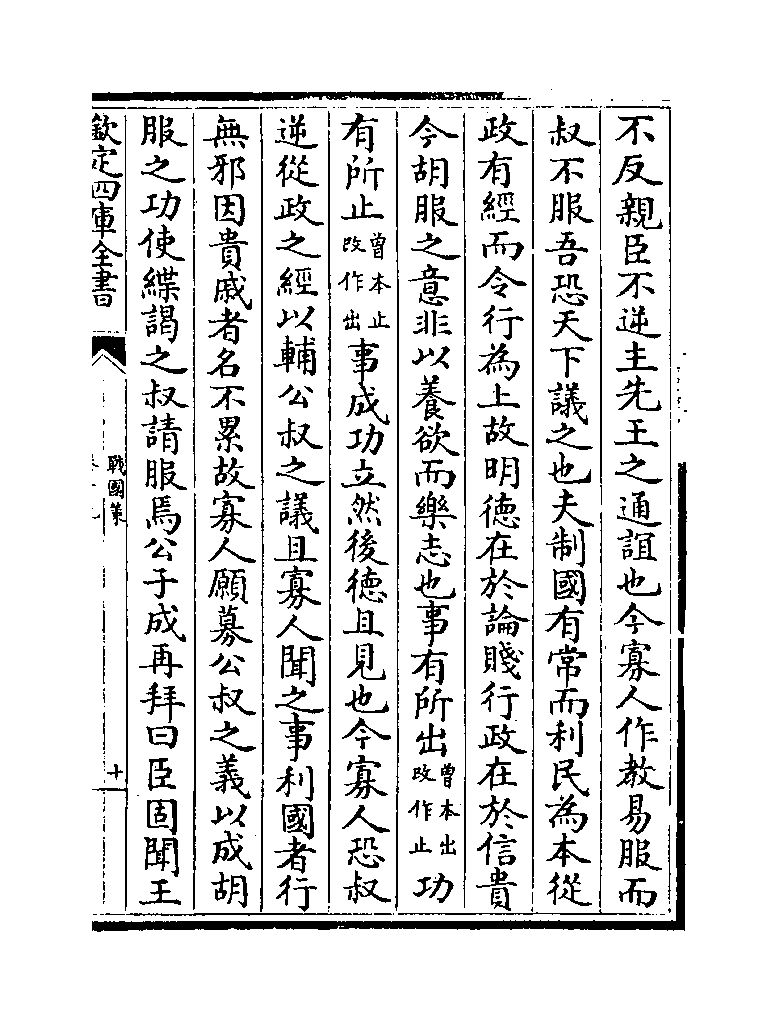 不反親臣不逆主先王之通誼也今寡人作教易服而
叔不服吾恐天下議之也夫制國有常而利民為本從
政有經而令行為上故明徳在於論賤行政在於信貴
今胡服之意非以養欲而樂志也事有所出曾本出改作止功
有所止曾本止改作出事成功立然後徳且見也今寡人恐叔
逆從政之經以輔公叔之議且寡人聞之事利國者行
無邪因貴戚者名不累故寡人願募公叔之義以成胡
服之功使緤謁之叔請服焉公子成再拜曰臣固聞王
欽定四庫全書
戰國策
十